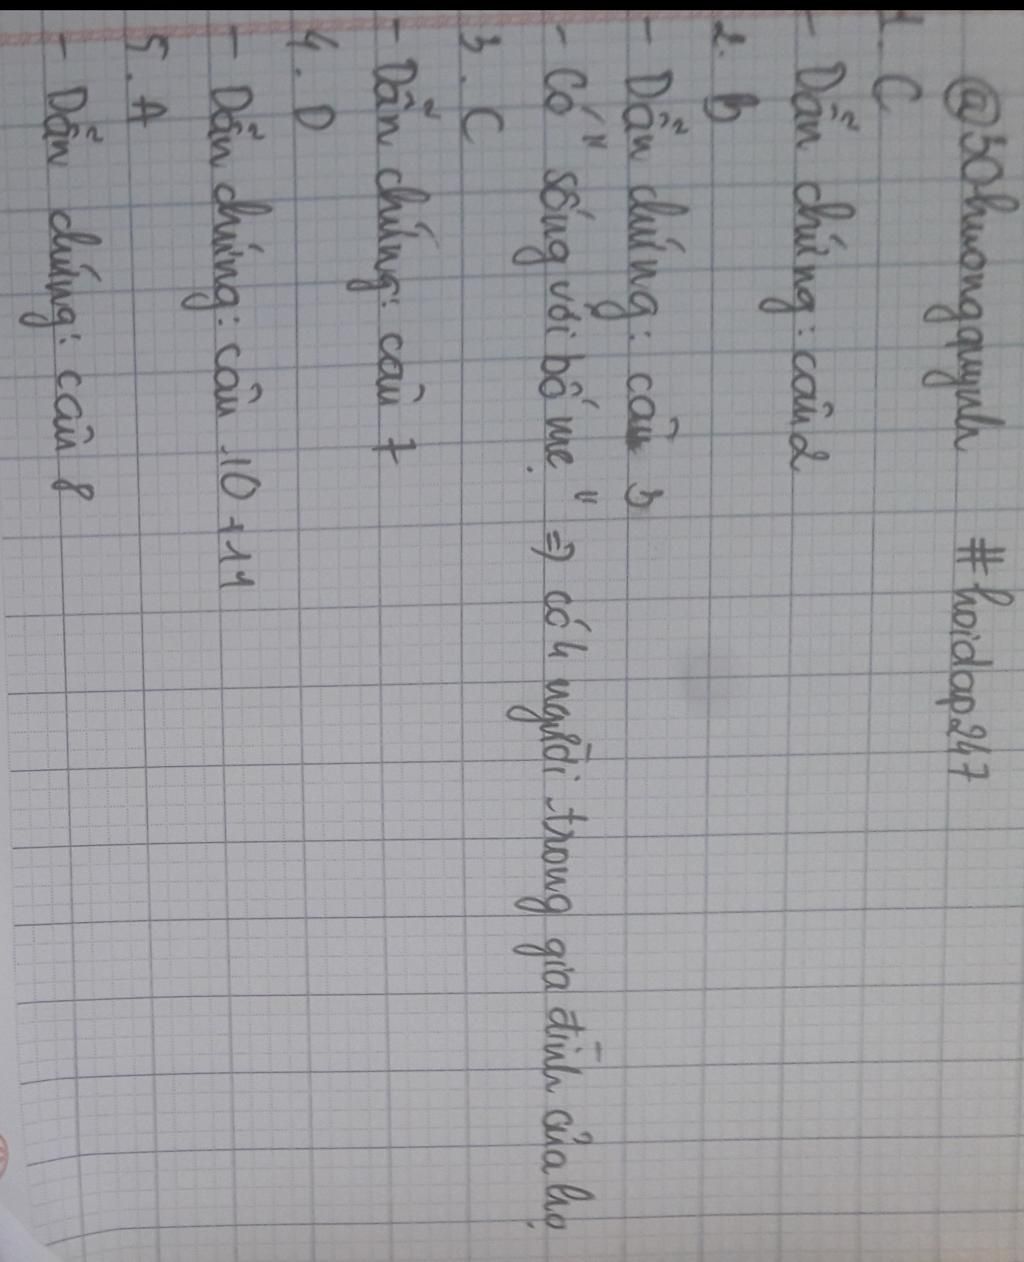 @30huongquynh #hoidap247
1. C
- Dẫn chứng: câu 2
2. B
- Dẫn chứng: câu 3
- Có "sống với bố mẹ" => có 4 người trong gia đình của họ
3. C
- Dẫn chứng: câu 7
4. D
- Dẫn chứng: câu 10 + 11
5. A
- Dẫn chứng: câu 8